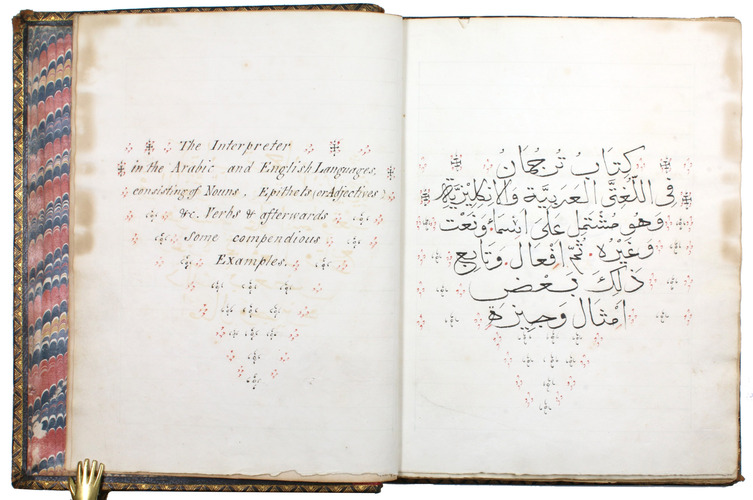 The Interpreter
in the Arabic and English Languages,
consisting of Nouns, Epithets (or Adjectives)
&c. Verbs & afterwards
Some compendious
Examples.
كِتَابُ تُرجُمَان
فِي اللُّغَتَيِ العَرَبِيَّة وَالانكِلِيزِيَّة
وَهُوَ مُشْتَمِل عَلَى اسْمَا وَنَعْت
وَغَيْرُه ثُمَّ افعَال وَتَابِع
ذَلِكَ بَعْض
امْثَال وَجِيزَة